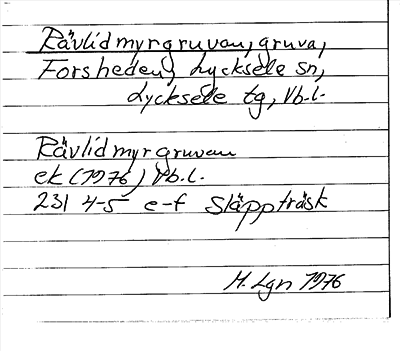 Rävlidmyrgruvan, gruva,
Forsheden, Lycksele sn,
Lycksele tg, Vb.l.
Rävlidmyrgruvan
ek (1976) Vb.l.
231 4-5 e-f Släppträsk
H. Lgn 1976